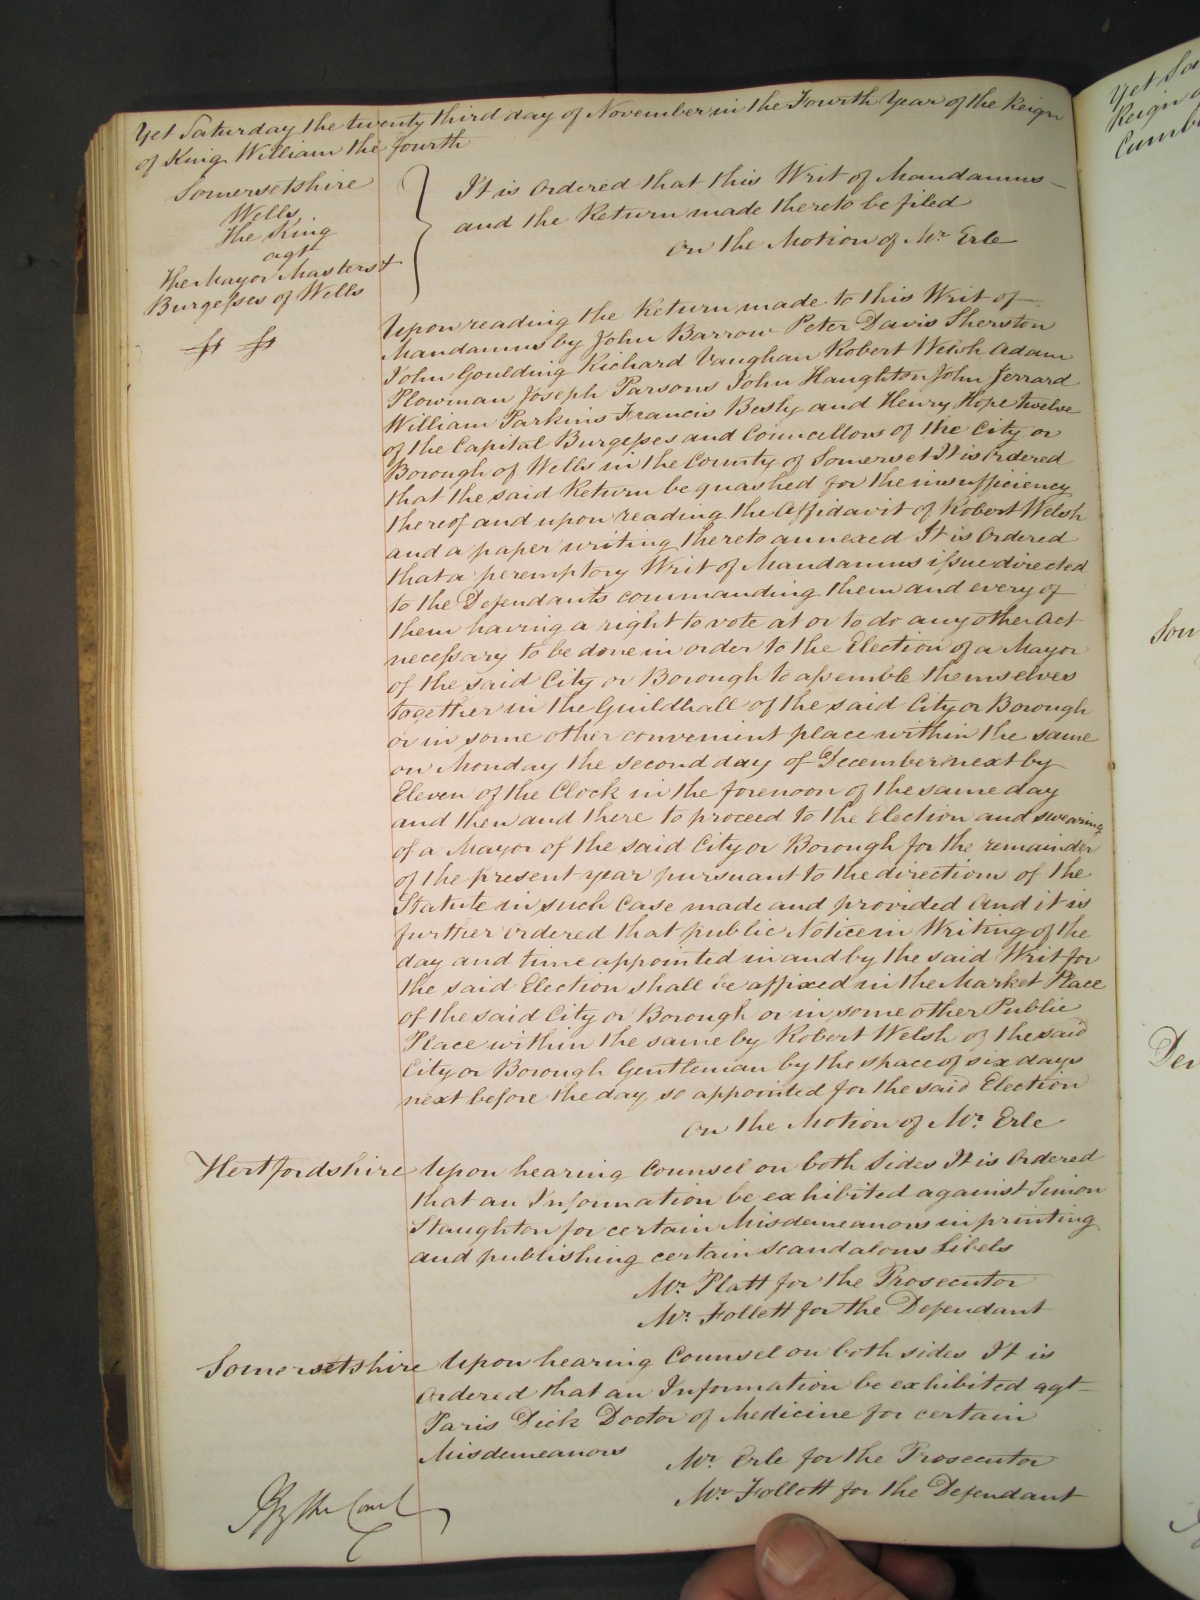 Yet Saturday the twenty third day of November in the Fourth Year of the Reign
of King William the fourth
Somersetshire
Wells
The King
agt
The Mayor Masters &
Burgesses of Wells
It is Ordered that this Writ of Mandamus
and the Return made thereto be filed
On the Motion of Mr. Erle
Upon reading the Return made to this Writ of
Mandamus by John Barrow Peter Davis Sherston
John Goulding Richard Vaughan Robert Welsh Adam
Plowman Joseph Parsons John Haughton John Jerrard
William Parkins Francis Besly and Henry Hope twelve
of the Capital Burgesses and Councellors of the City or
Borough of Wells in the County of Somerset It is Ordered
that the said Return be quashed for the insufficiency
thereof and upon reading the Affidavit of Robert Welsh
and a paper writing thereto annexed It is Ordered
that a peremptory Writ of Mandamus issue directed
to the Defendants commanding them and every of
them having a right to vote at or to do any other Act
necessary to be done in order to the Election of a Mayor
of the said City or Borough to assemble themselves
together in the Guildhall of the said City or Borough
or in some other convenient place within the same
on Monday the second day of December next by
Eleven of the Clock in the forenoon of the same day
and then and there to proceed to the Election and swearing
of a Mayor of the said City or Borough for the remainder
of the present year pursuant to the directions of the
Statute in such Case made and provided And it is
further ordered that public Notice in Writing of the
day and time appointed in and by the said Writ for
the said Election shall be affixed in the Market Place
of the said City or Borough or in some other Public
Place within the same by Robert Welsh of the said
City or Borough Gentleman by the space of six days
next before the day so appointed for the said Election
On the Motion of Mr. Erle
Hertfordshire Upon hearing Counsel on both sides It is Ordered
that an Information be exhibited against Simon
Staughton for certain Misdemeanors in printing
and publishing certain scandalous Libels
Mr. Platt for the Prosecutor
Mr. Follett for the Defendant
Somersetshire Upon hearing Counsel on both sides It is
Ordered that an Information be exhibited agt
Paris Dick Doctor of Medicine for certain
Misdemeanors
Mr. Erle for the Prosecutor
Mr. Follett for the Defendant
By the Court
Yet Sa
Reign o
Cumb
Som
Der